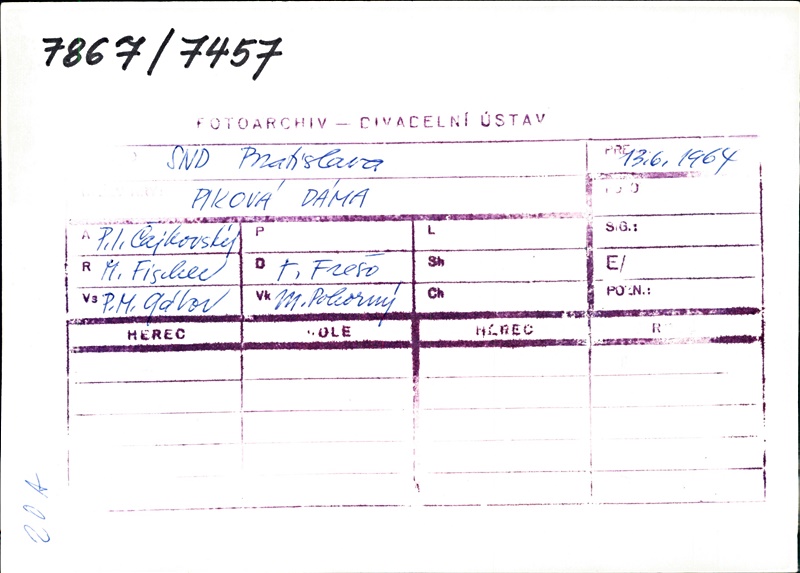 7867/7457
FOTOARCHIV — DIVADELNÍ ÚSTAV
SND Bratislava
PRE 13.6.1964
PIKOVÁ DÁMA
A P.I. Čajkovský P L SIG.:
R M. Fischer D T. Frešo Sh E/
Vs P.M. Gábor Vk M. Pokorný Ch POZN.:
HEREC ROLE HEREC R
20A